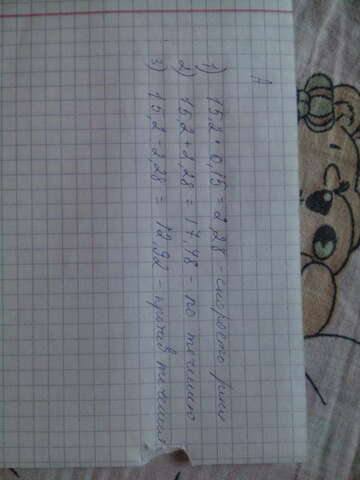 А
1) 15,2 * 0,15 = 2,28 - скорость реки
2) 15,2 + 2,28 = 17,48 - по течению
3) 15,2 - 2,28 = 12,92 - против течения